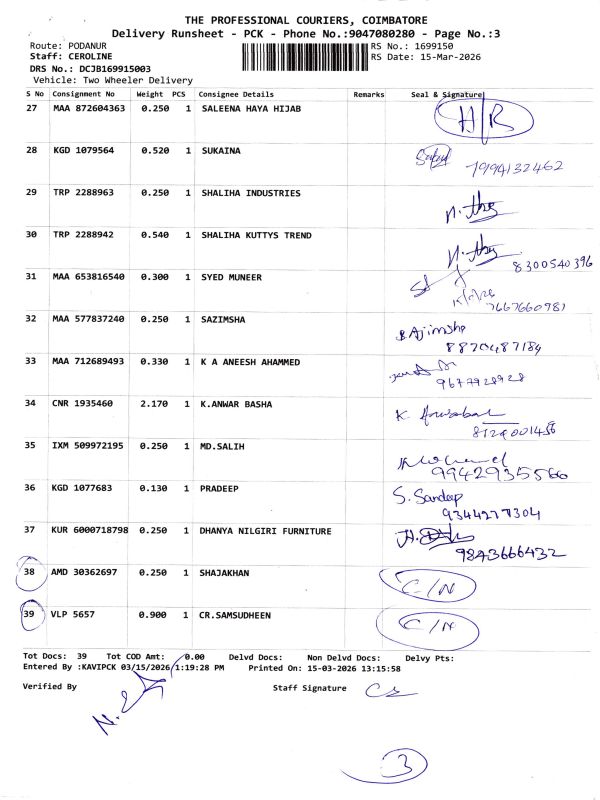 THE PROFESSIONAL COURIERS, COIMBATORE
Delivery Runsheet - PCK - Phone No.:9047080280 - Page No.:3
Route: PODANUR RS No.: 1699150
Staff: CEROLINE RS Date: 15-Mar-2026
DRS No.: DCJB169915003
Vehicle: Two Wheeler Delivery
S No Consignment No Weight PCS Consignee Details Remarks Seal & Signature
27 MAA 872604363 0.250 1 SALEENA HAYA HIJAB
28 KGD 1079564 0.520 1 SUKAINA
7994132462
29 TRP 2288963 0.250 1 SHALIHA INDUSTRIES
30 TRP 2288942 0.540 1 SHALIHA KUTTYS TREND
8300540396
31 MAA 653816540 0.300 1 SYED MUNEER
7667660981
32 MAA 577837240 0.250 1 SAZIMSHA
Ajimsha
8870487184
33 MAA 712689493 0.330 1 K A ANEESH AHAMMED
9677928928
34 CNR 1935460 2.170 1 K.ANWAR BASHA
K
35 IXM 509972195 0.250 1 MD.SALIH
9942935566
36 KGD 1077683 0.130 1 PRADEEP
S. Sandeep
9344277304
37 KUR 6000718798 0.250 1 DHANYA NILGIRI FURNITURE
9843666432
38 AMD 30362697 0.250 1 SHAJAKHAN C/N
39 VLP 5657 0.900 1 CR.SAMSUDHEEN C/N
Tot Docs: 39 Tot COD Amt: 0.00 Delvd Docs: Non Delvd Docs: Delvy Pts:
Entered By :KAVIPCK 03/15/2026 1:19:28 PM Printed On: 15-03-2026 13:15:58
Verified By Staff Signature
3